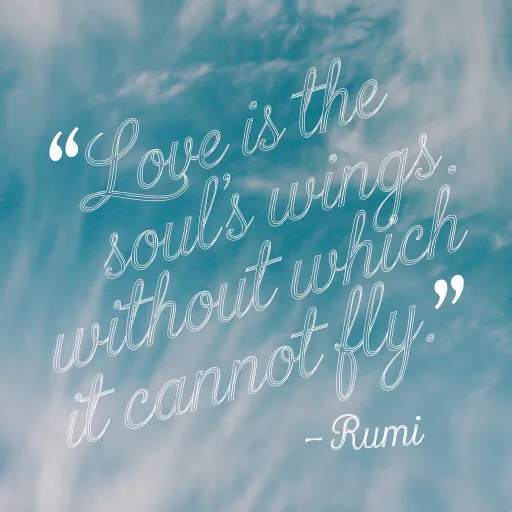 “Love is the
soul's wings.
without which
it cannot fly.”
- Rumi